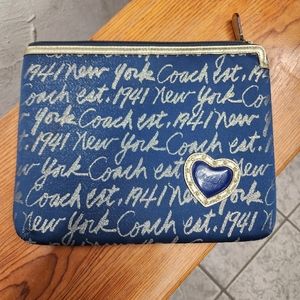 1941 New York Coach est.
oach est. 1941 New York
New York Coach est. 19
Coach est. 1941 New Yo
New York Coach est. 1
ew York Coach est.
Coach est. 1941
New York Coach est. 1941